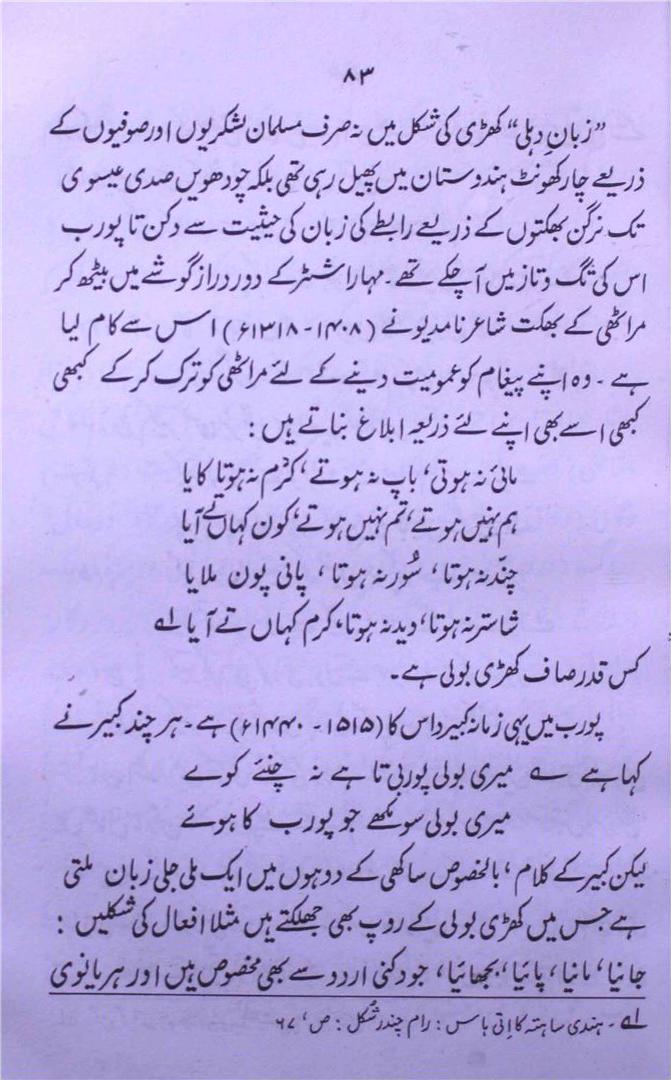 ۸۳
”زبانِ دہلی“ کھڑی کی شکل میں نہ صرف مسلمان لشکریوں اور صوفیوں کے
ذریعے چار کھونٹ ہندوستان میں پھیل رہی تھی بلکہ چودھویں صدی عیسوی
تک نرگن بھکتوں کے ذریعے رابطے کی زبان کی حیثیت سے دکن تا پورب
اس کی تگ و تاز میں آ چکے تھے۔ مہاراشٹر کے دور دراز گوشے میں بیٹھ کر
مراٹھی کے بھکت شاعر نامدیو نے (۱۴۰۸ - ۱۳۱۸ء) اس سے کام لیا
ہے۔ وہ اپنے پیغام کو عمومیت دینے کے لئے مراٹھی کو ترک کر کے کبھی
کبھی اسے بھی اپنے لئے ذریعہ ابلاغ بناتے ہیں :
مائی نہ ہوتی، باپ نہ ہوتے، کرم نہ ہوتا کایا
ہم نہیں ہوتے، تم نہیں ہوتے، کون کہاں تے آیا
چند نہ ہوتا، سُور نہ ہوتا، پانی پون ملایا
شاستر نہ ہوتا، دید نہ ہوتا، کرم کہاں تے آیا ۱ے
کس قدر صاف کھڑی بولی ہے۔
پورب میں یہی زمانہ کبیر داس کا (۱۵۱۵ - ۱۴۴۰ء) ہے۔ ہر چند کبیر نے
کہا ہے ؎ میری بولی پوربی تا ہے نہ چنئے کوے
میری بولی سو مکھے جو پورب کا ہوئے
لیکن کبیر کے کلام، بالخصوص ساکھی کے دوہوں میں ایک ملی جلی زبان ملتی
ہے جس میں کھڑی بولی کے روپ بھی جھلکتے ہیں مثلا افعال کی شکلیں :
جانیا، مانیا، پائیا، بجھائیا، جو دکنی اردو سے بھی مخصوص ہیں اور ہریانوی
۱ے۔ ہندی ساہتہ کا اِتی ہاس : رام چندر شُکل : ص، ۶۷